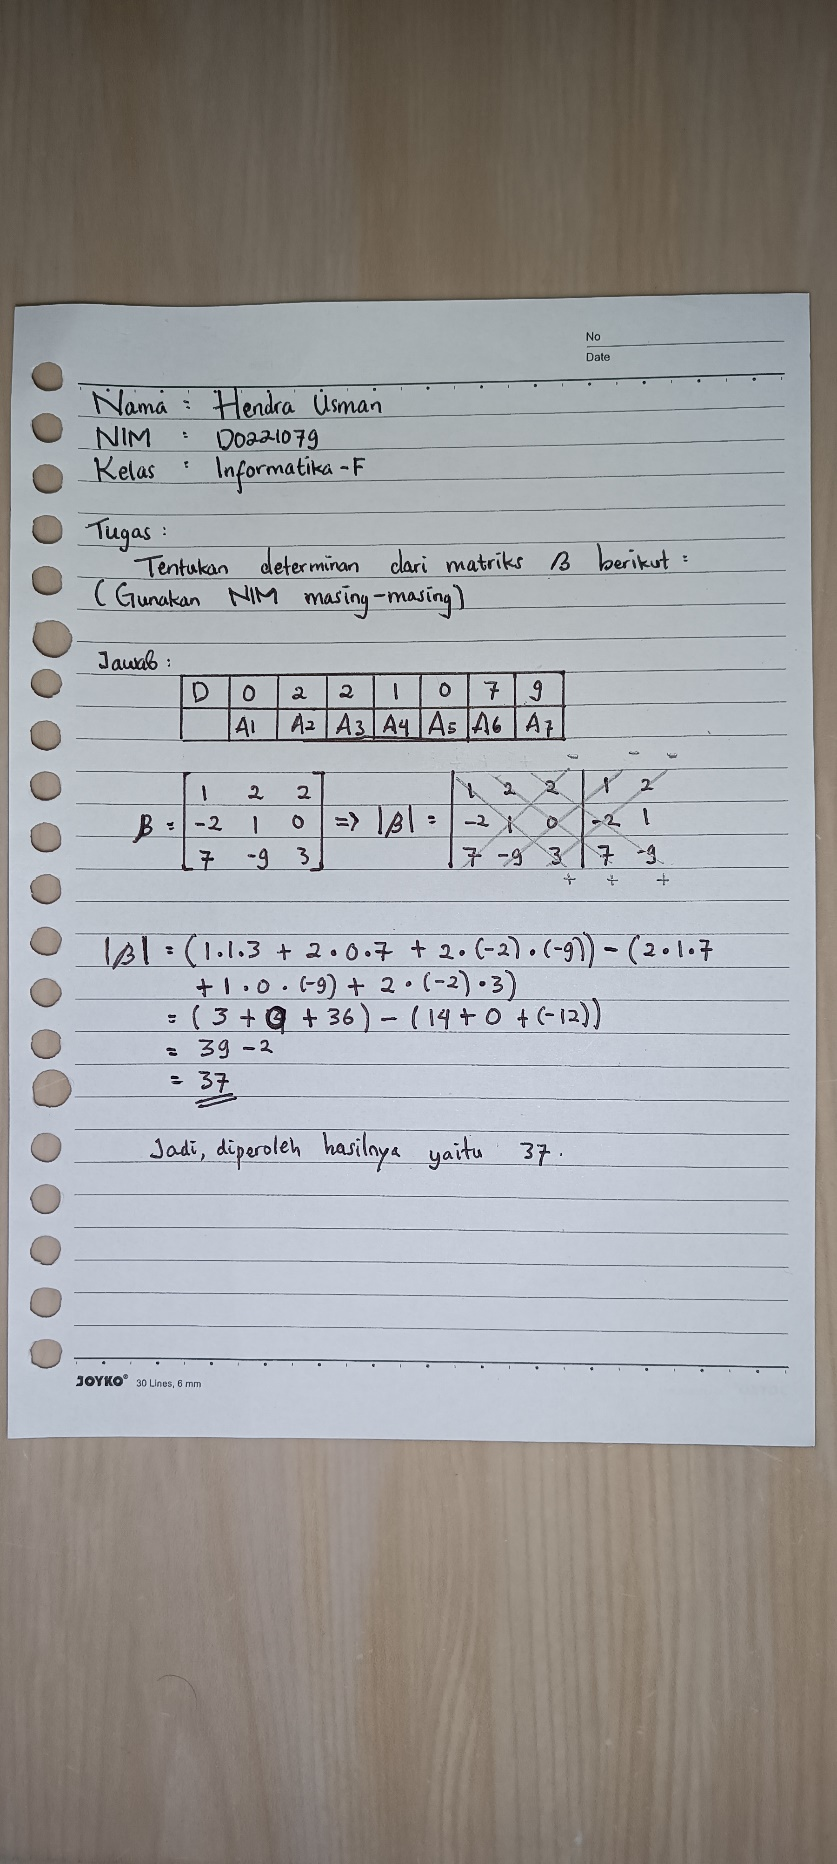 No
Date
Nama : Hendra Usman
NIM : D0221079
Kelas : Informatika-F
Tugas :
Tentukan determinan dari matriks B berikut :
(Gunakan NIM masing-masing)
Jawab :
D 0 2 2 1 0 7 9
A1 A2 A3 A4 A5 A6 A7
- - -
1 2 2 1 2 2 1 2
B = -2 1 0 => |B| = -2 1 0 -2 1
7 -9 3 7 -9 3 7 -9
+ + +
|B| = (1.1.3 + 2.0.7 + 2.(-2).(-9)) - (2.1.7
+ 1.0.(-9) + 2.(-2).3)
= (3 + 0 + 36) - (14 + 0 + (-12))
= 39 - 2
= 37
Jadi, diperoleh hasilnya yaitu 37.
JOYKO® 30 Lines, 6 mm